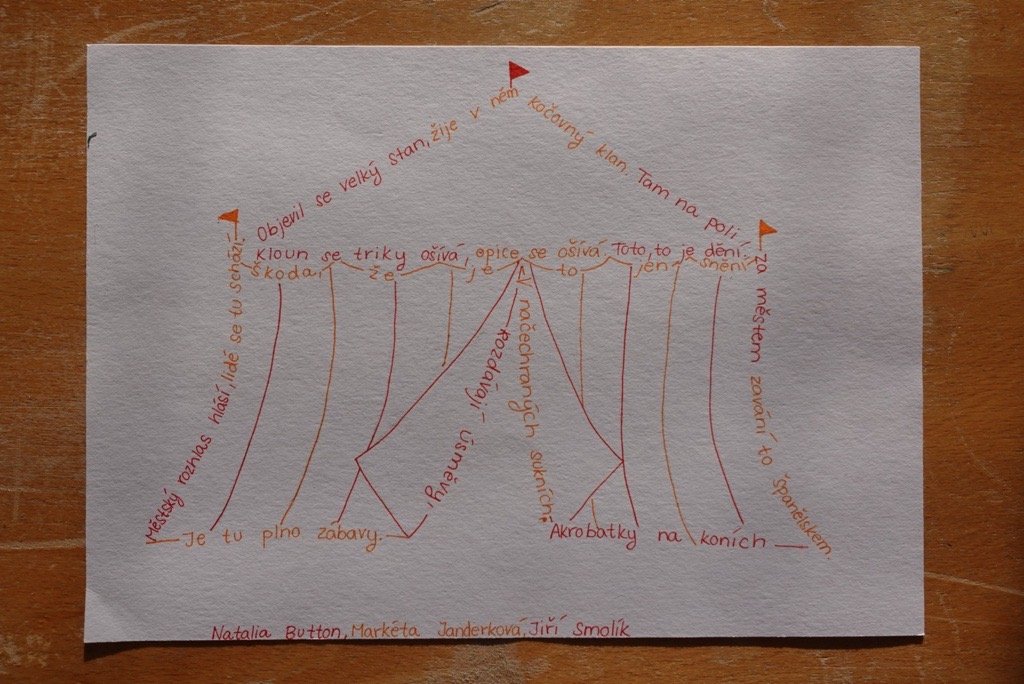 Městský rozhlas hlásí, lidé se tu schází.
Objevil se velký stan, žije v něm
kočovný klan. Tam na poli
za městem zavání to Španělskem.
Kloun se triky ošívá, opice se ošívá. Toto, to je dění.
Škoda, že je to jen snění
Akrobatky na koních
v načechraných sukních
rozdávají úsměvy,
Je tu plno zábavy.
Natalia Button, Markéta Janderková, Jiří Smolík